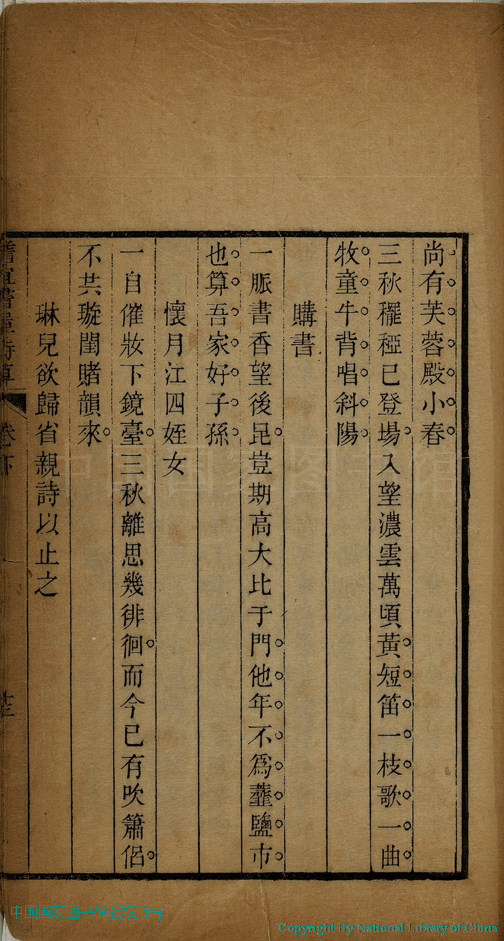 尚有芙蓉殿小春
三秋䆉稏已登場入望濃雲萬頃黃短笛一枝歌一曲
牧童牛背唱斜陽
購書
一脈書香望後昆豈期高大比于門他年不為虀鹽市
也算吾家好子孫
懷月江四姪女
一自催妝下鏡臺三秋離思幾徘徊而今已有吹簫侶
不共璇閨賭韻來
琳兒欲歸省親詩以止之
卷下
Copyright by National Library of China